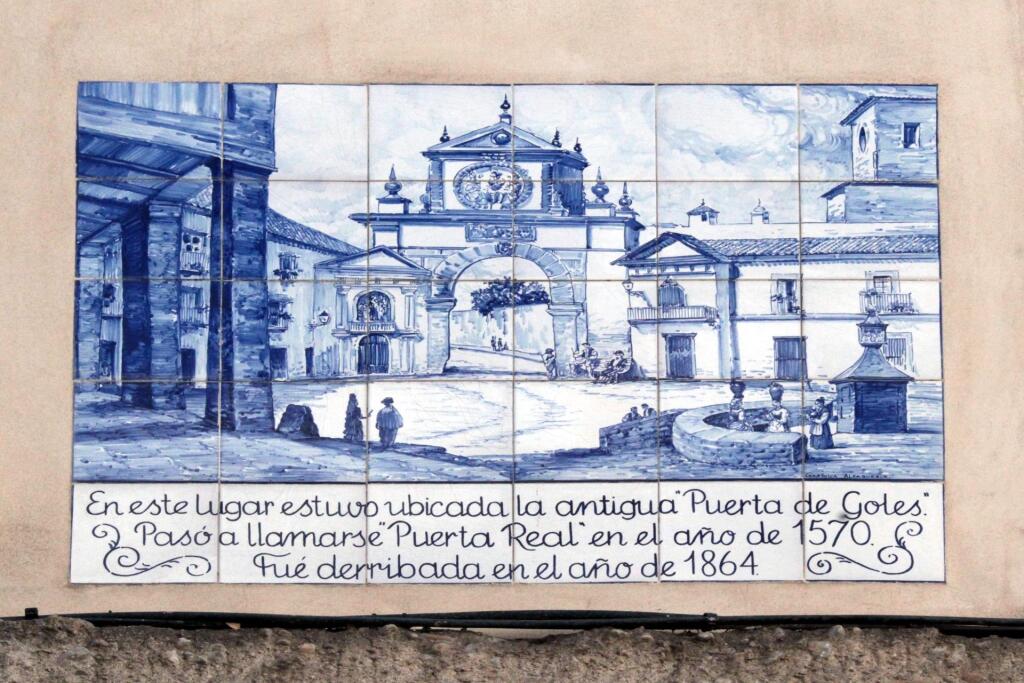 En este lugar estuvo ubicada la antigua "Puerta de Goles".
Pasó a llamarse "Puerta Real" en el año de 1570.
Fué derribada en el año de 1864